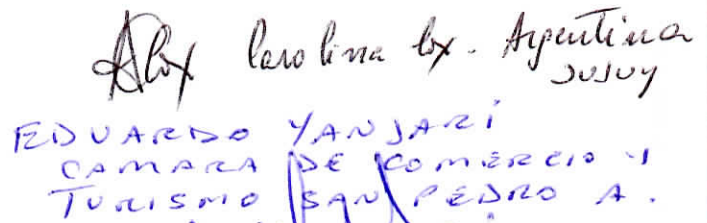 Carolina Lox. Argentina
JUJUY
EDUARDO YANJARI
CAMARA DE COMERCIO Y
TURISMO SAN PEDRO A.